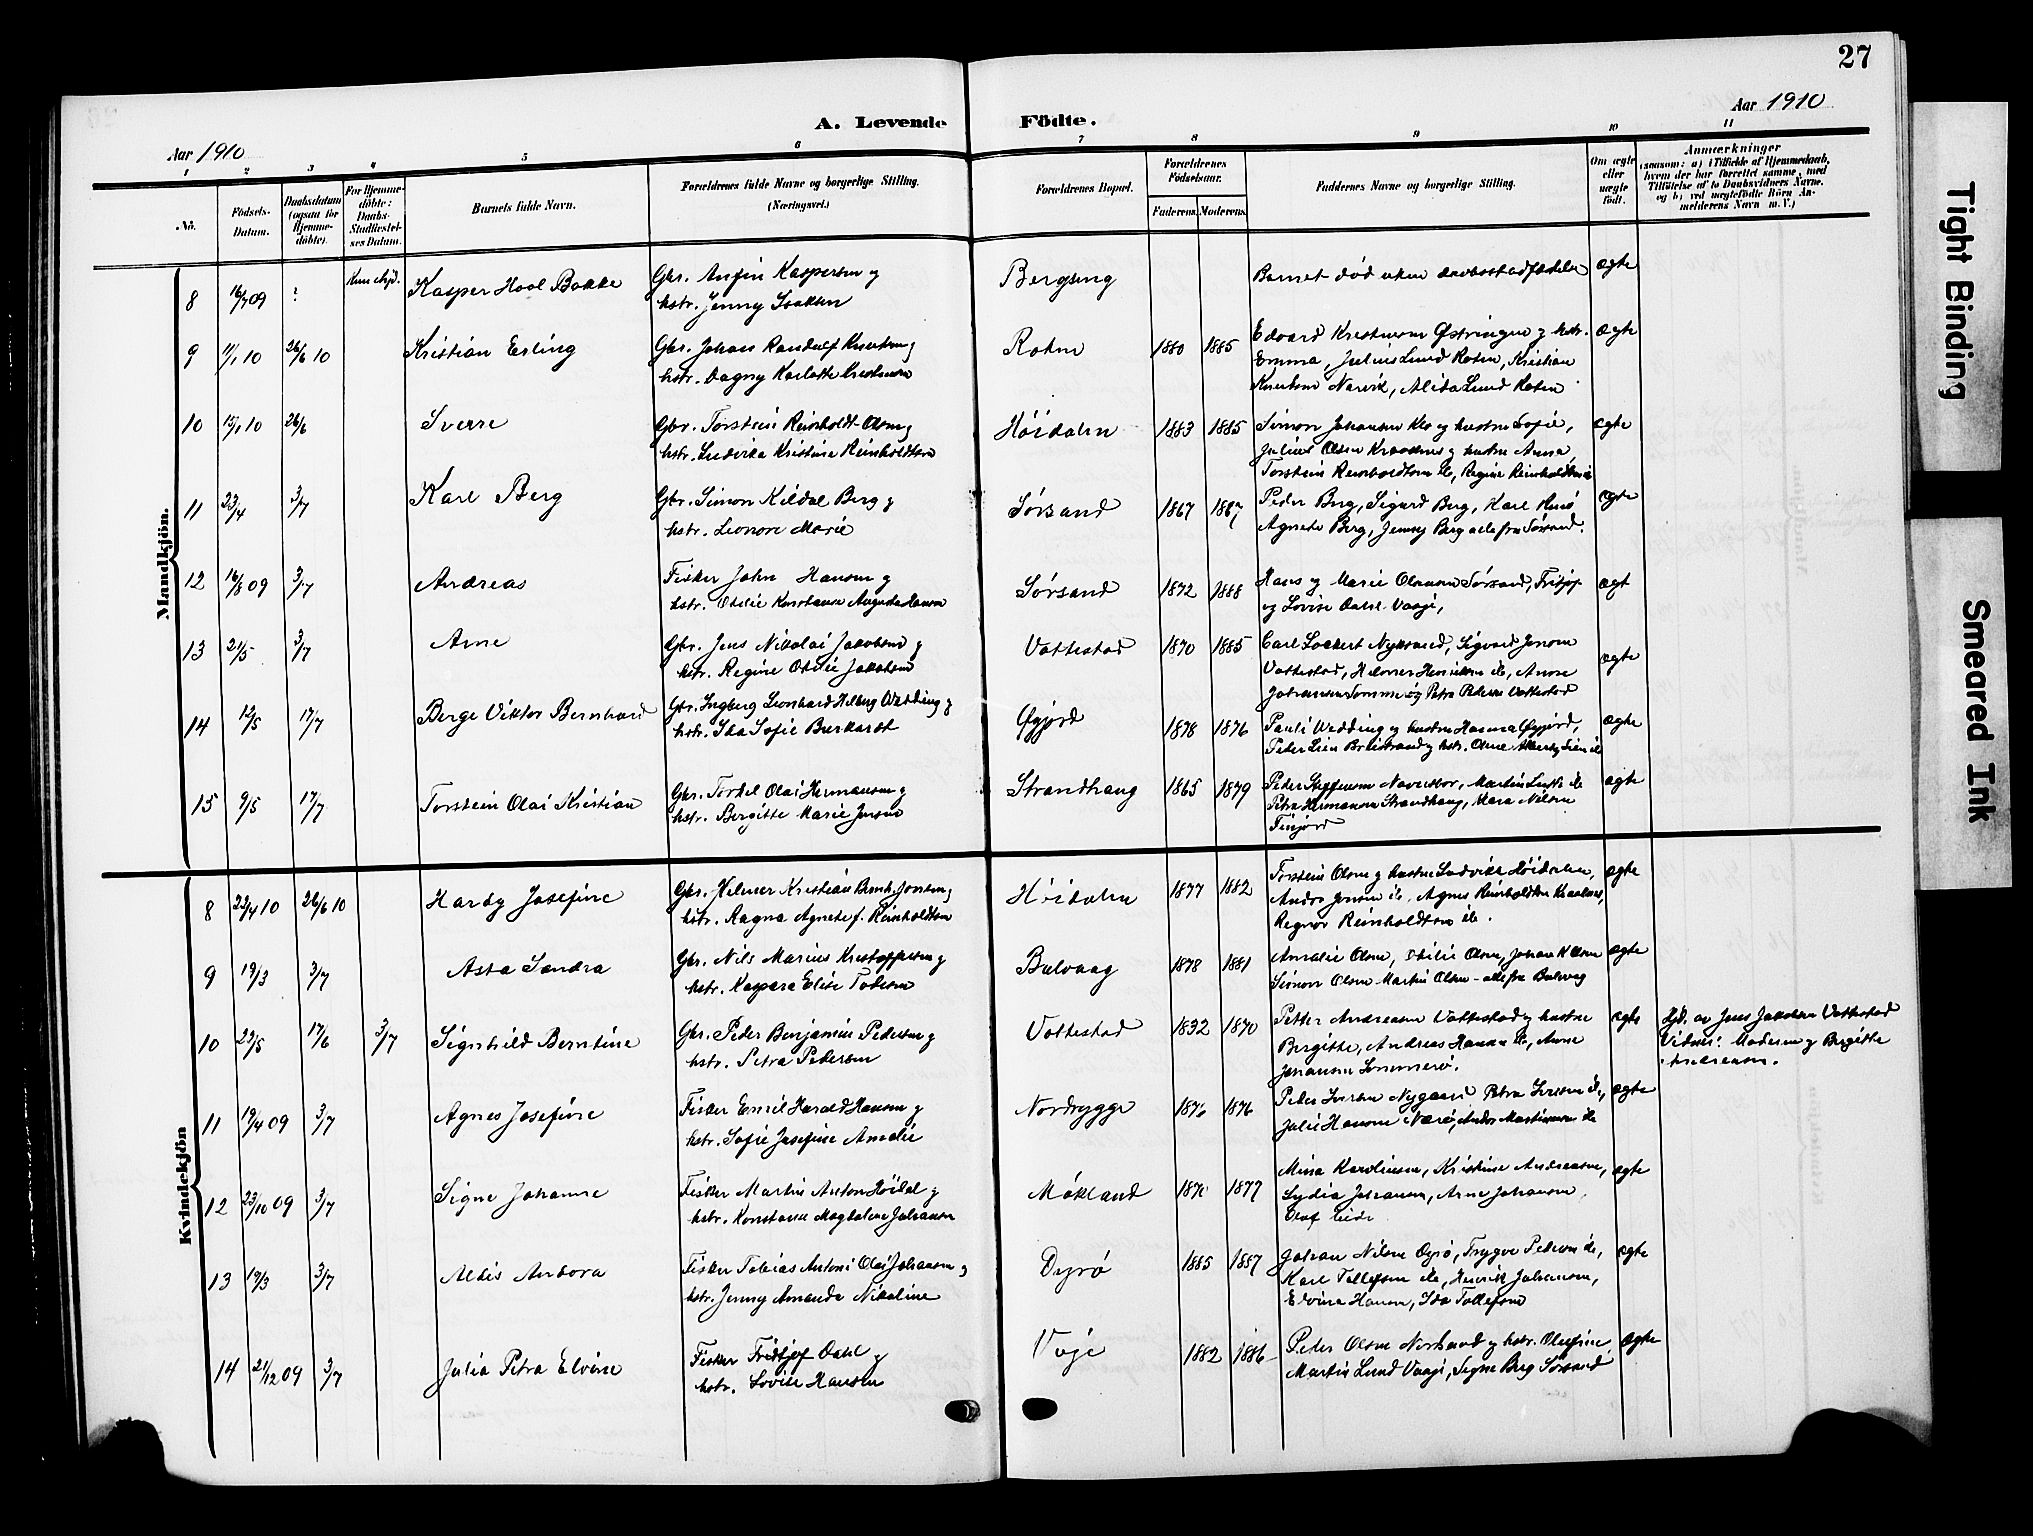 27
A. Levende Födte.
Aar 1910
Aar 1910
1 2 3 4 5 6 7 8 9 10 11
No.
Födsels-Datum.
Daabsdatum (ogsaa for Hjemme-döbte).
For Hjemme-döbte: Daabs-Stadfæstel-ses Datum.
Barnets fulde Navn.
Forældrenes fulde Navne og borgerlige Stilling. (Næringsvei.)
Forældrenes Bopæl.
Forældrenes Födselsaar.
Faderens. Moderens.
Faddernes Navne og borgerlige Stilling.
Om ægte eller uægte födt.
Anmærkninger
(saasom: a) i Tilfælde af Hjemmedaab,
hvem der har forrettet samme, med
Tilföielse af to Daabsvidners Navne,
og b) ved uægtefödte Börn An-
melderens Navn m. V.)
Mandkjön.
8 16/7 09 ? Kasper Hool Bakke
Gbr. Anfin Kaspersen og
hstr. Jenny Isaksen
Bergseng
Barnet död uten daabsstadfæstelse ægte
9 11/1 10 26/6 10 Kristian Erling
Gbr. Johan Randulf Knutsen og
hstr. Dagny Karlotte
Roten 1880 1885
Edvard Kristensen Østringen og hstr.
Emma, Julius Lund Roten, Kristian
Knutsen Narvik, Alida Lund Roten
ægte
10 15/1 10 26/6 Sverre
Gbr. Torstein Reinholdt-Olsen og
hstr. Ludvika Kristine Reinholdtsen
Höidalen 1883 1885
Simon Johansen Klo og hustru Sofie,
Julius Olsen og hustru Anna,
Torstein Reinholdtsen ib, Regine Reinholdtsen ib
ægte
11 23/4 3/7 Karl Berg
Gbr. Simon Kildal Berg og
hstr. Leonore Marie
Sørsand 1867 1887
Peder Berg, Sigurd Berg, Karl
Agnete Berg, Jenny Berg alle fra Sørsand.
ægte
12 16/8 09 3/7 Andreas
Fisker John Hansen og
hstr. Otelie Konstanse Augusta Hansen
Sørsand 1872 1888
Hans og Marie Olausen Sørsand, Fritjof
og Lovise Dahl Vaage,
ægt
13 21/5 3/7 Arne
Gbr. Jens Nikolai Jakobsen og
hstr. Regine Otelie Jakobsen
Vottestad 1870 1885
Carl Lockert Nyksund, Sigvard Jensen
Vottestad, Helmer Henriksen ib, Anne
Johansen Sommerø og Petra Pedersen Vottestad
ægte
14 12/5 17/7 Berge Viktor Bernhard
Gbr. Ingberg Leonhard Hilberg Wedding og
hstr. Ida Sofie Burkardt
Øgfjord 1878 1876
Pauli Wedding og hustru Hanna Øgfjord,
Peder Lien Breistrand og hstr.
ægte
15 9/5 17/7 Torstein Olai Kristian
Gbr. Torkel Olai Hermansen og
hstr. Bergitte Marie Jensen
Strandhaug 1865 1879
Peder Steffensen
Petra Hermansen Strandhaug, Mara Nilsen
Finjord
ægte
Kvindekjön
8 22/4 10 26/6 10 Hardy Josefine
Gbr. Helmer Kristian Bernh. Jensen og
hstr. Ragna Agnete f. Reinholdtsen
Höidalen 1877 1882
Torstein Olsen og hustru Ludvikke Höidalen,
Andor Jensen ib, Agnes Reinholdtsen
Regnor Reinholdtsen ib.
ægte
9 19/3 3/7 Asta Sandra
Gbr. Nils Marius Kristoffersen og
hstr. Kaspara Elise
Balvaag 1878 1881
Amalie Olsen, Otelie Olsen, Johan K Olsen
Simon Olsen - Martin Olsen - alle fra Balvaag
ægte
10 23/5 17/6 3/7 Signhild Berntine
Gbr. Peder Benjamin Pedersen og
hstr. Petra Pedersen
Vottestad 1832 1870
Petter Andreasen Vottestad og hustru
Bergitte, Andreas Hansen ib, Anne
Johansen Sommerø.
ægte
Hjd. av Jens Jakobsen Vottestad
Vidner: Moderen og Bergitte
Andreasen.
11 19/4 09 3/7 Agnes Josefine
Fisker Emil Harald Hansen og
hstr. Sofie Josefine Amalie
Nordrygge 1876 1876
Peder Iversen Nygaard Petra Iversen ib,
Julie Hansen Nærø, Andor Martinsen ib
ægte
12 23/10 09 3/7 Signe Johanne
Fisker Martin Anton Höidal og
hstr. Konstanse Magdalene Johansen
Møkland 1877
Mina Karolinsen, Kristine Andreasen,
Lydia Johansen, Arne Johansen,
Olaf
ægte
13 19/3 3/7 Aldis Andora
Fisker Tobias Antoni Olai Johansen og
hstr. Jenny Amanda Nikoline
Dyrø 1885 1887
Johan Nilsen Dyrø, Trygve Pedersen ib,
Karl Tollefsen ib, Henrik Johansen,
Edvina Hansen, Ida Tollefsen
ægte
14 21/12 09 3/7 Julia Petra Elvine
Fisker Fridtjof Dahl og
hstr. Lovise Hansen
Vaage 1882 1886
Peder Olsen Norsand og hstr. Olufine
Martin Lund Vaage, Signe Berg Sørsand
ægte
Tight Binding
Smeared Ink